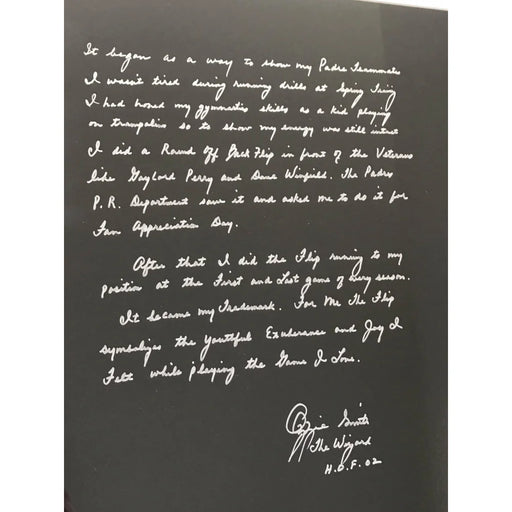 It began as a way to show my Padre Teammates
I wasn't tired during running drills at Spring Trainig
I had honed my gymnastics skills as a kid playing
on trampolins so to show my energy was still intact
I did a Round Off Back Flip in front of the Veterans
like Gaylord Perry and Dave Winfield. The Padres
P.R. Department saw it and asked me to do it for
Fan Appreciation Day.
After that I did the Flip running to my
position at the First and Last game of every season.
It became my Trademark. For Me The Flip
symbolizes the Youthful Exuberance and Joy I
Felt while playing the Game I Love.
Ozzie Smith
The Wizard
H.O.F. 02